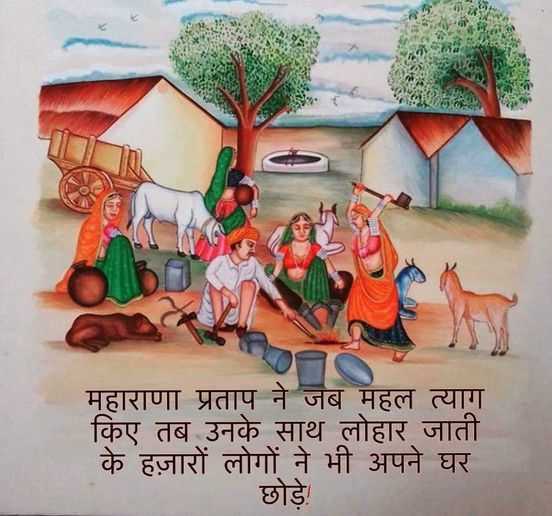 महाराणा प्रताप ने जब महल त्याग
किए तब उनके साथ लोहार जाती
के हज़ारों लोगों ने भी अपने घर
छोड़े!